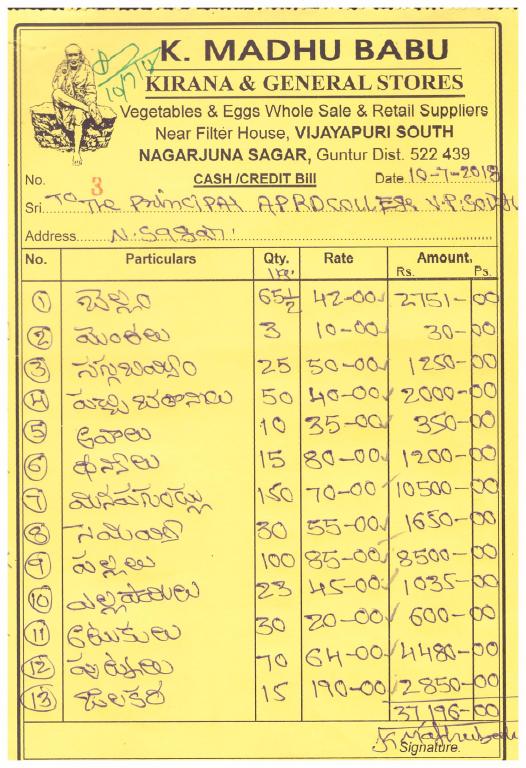 10/7/18
K. MADHU BABU
KIRANA & GENERAL STORES
Vegetables & Eggs Whole Sale & Retail Suppliers
Near Filter House, VIJAYAPURI SOUTH
NAGARJUNA SAGAR, Guntur Dist. 522 439
No. 3 CASH /CREDIT Bill Date 10-7-2018
Sri To The Principal A.P.R.D College V.P. South
Address N. సాగర్
No. Particulars Qty. Rate Amount.
Rs. Ps.
1 బెల్లం 65½ 42-00 2751-00
2 మెంతులు 3 10-00 30-00
3 25 50-00 1250-00
4 పచ్చి బఠానీలు 50 40-00 2000-00
5 ఆవాలు 10 35-00 350-00
6 15 80-00 1200-00
7 మినపగుండ్లు 150 70-00 10500-00
8 30 55-00 1650-00
9 పల్లీలు 100 85-00 8500-00
10 ఎల్లిపాయలు 23 45-00 1035-00
11 అటుకులు 30 20-00 600-00
12 పుట్నాలు 70 64-00 4480-00
13 జీలకర 15 190-00 2850-00
37196-00
K. Madhu babu
Signature.